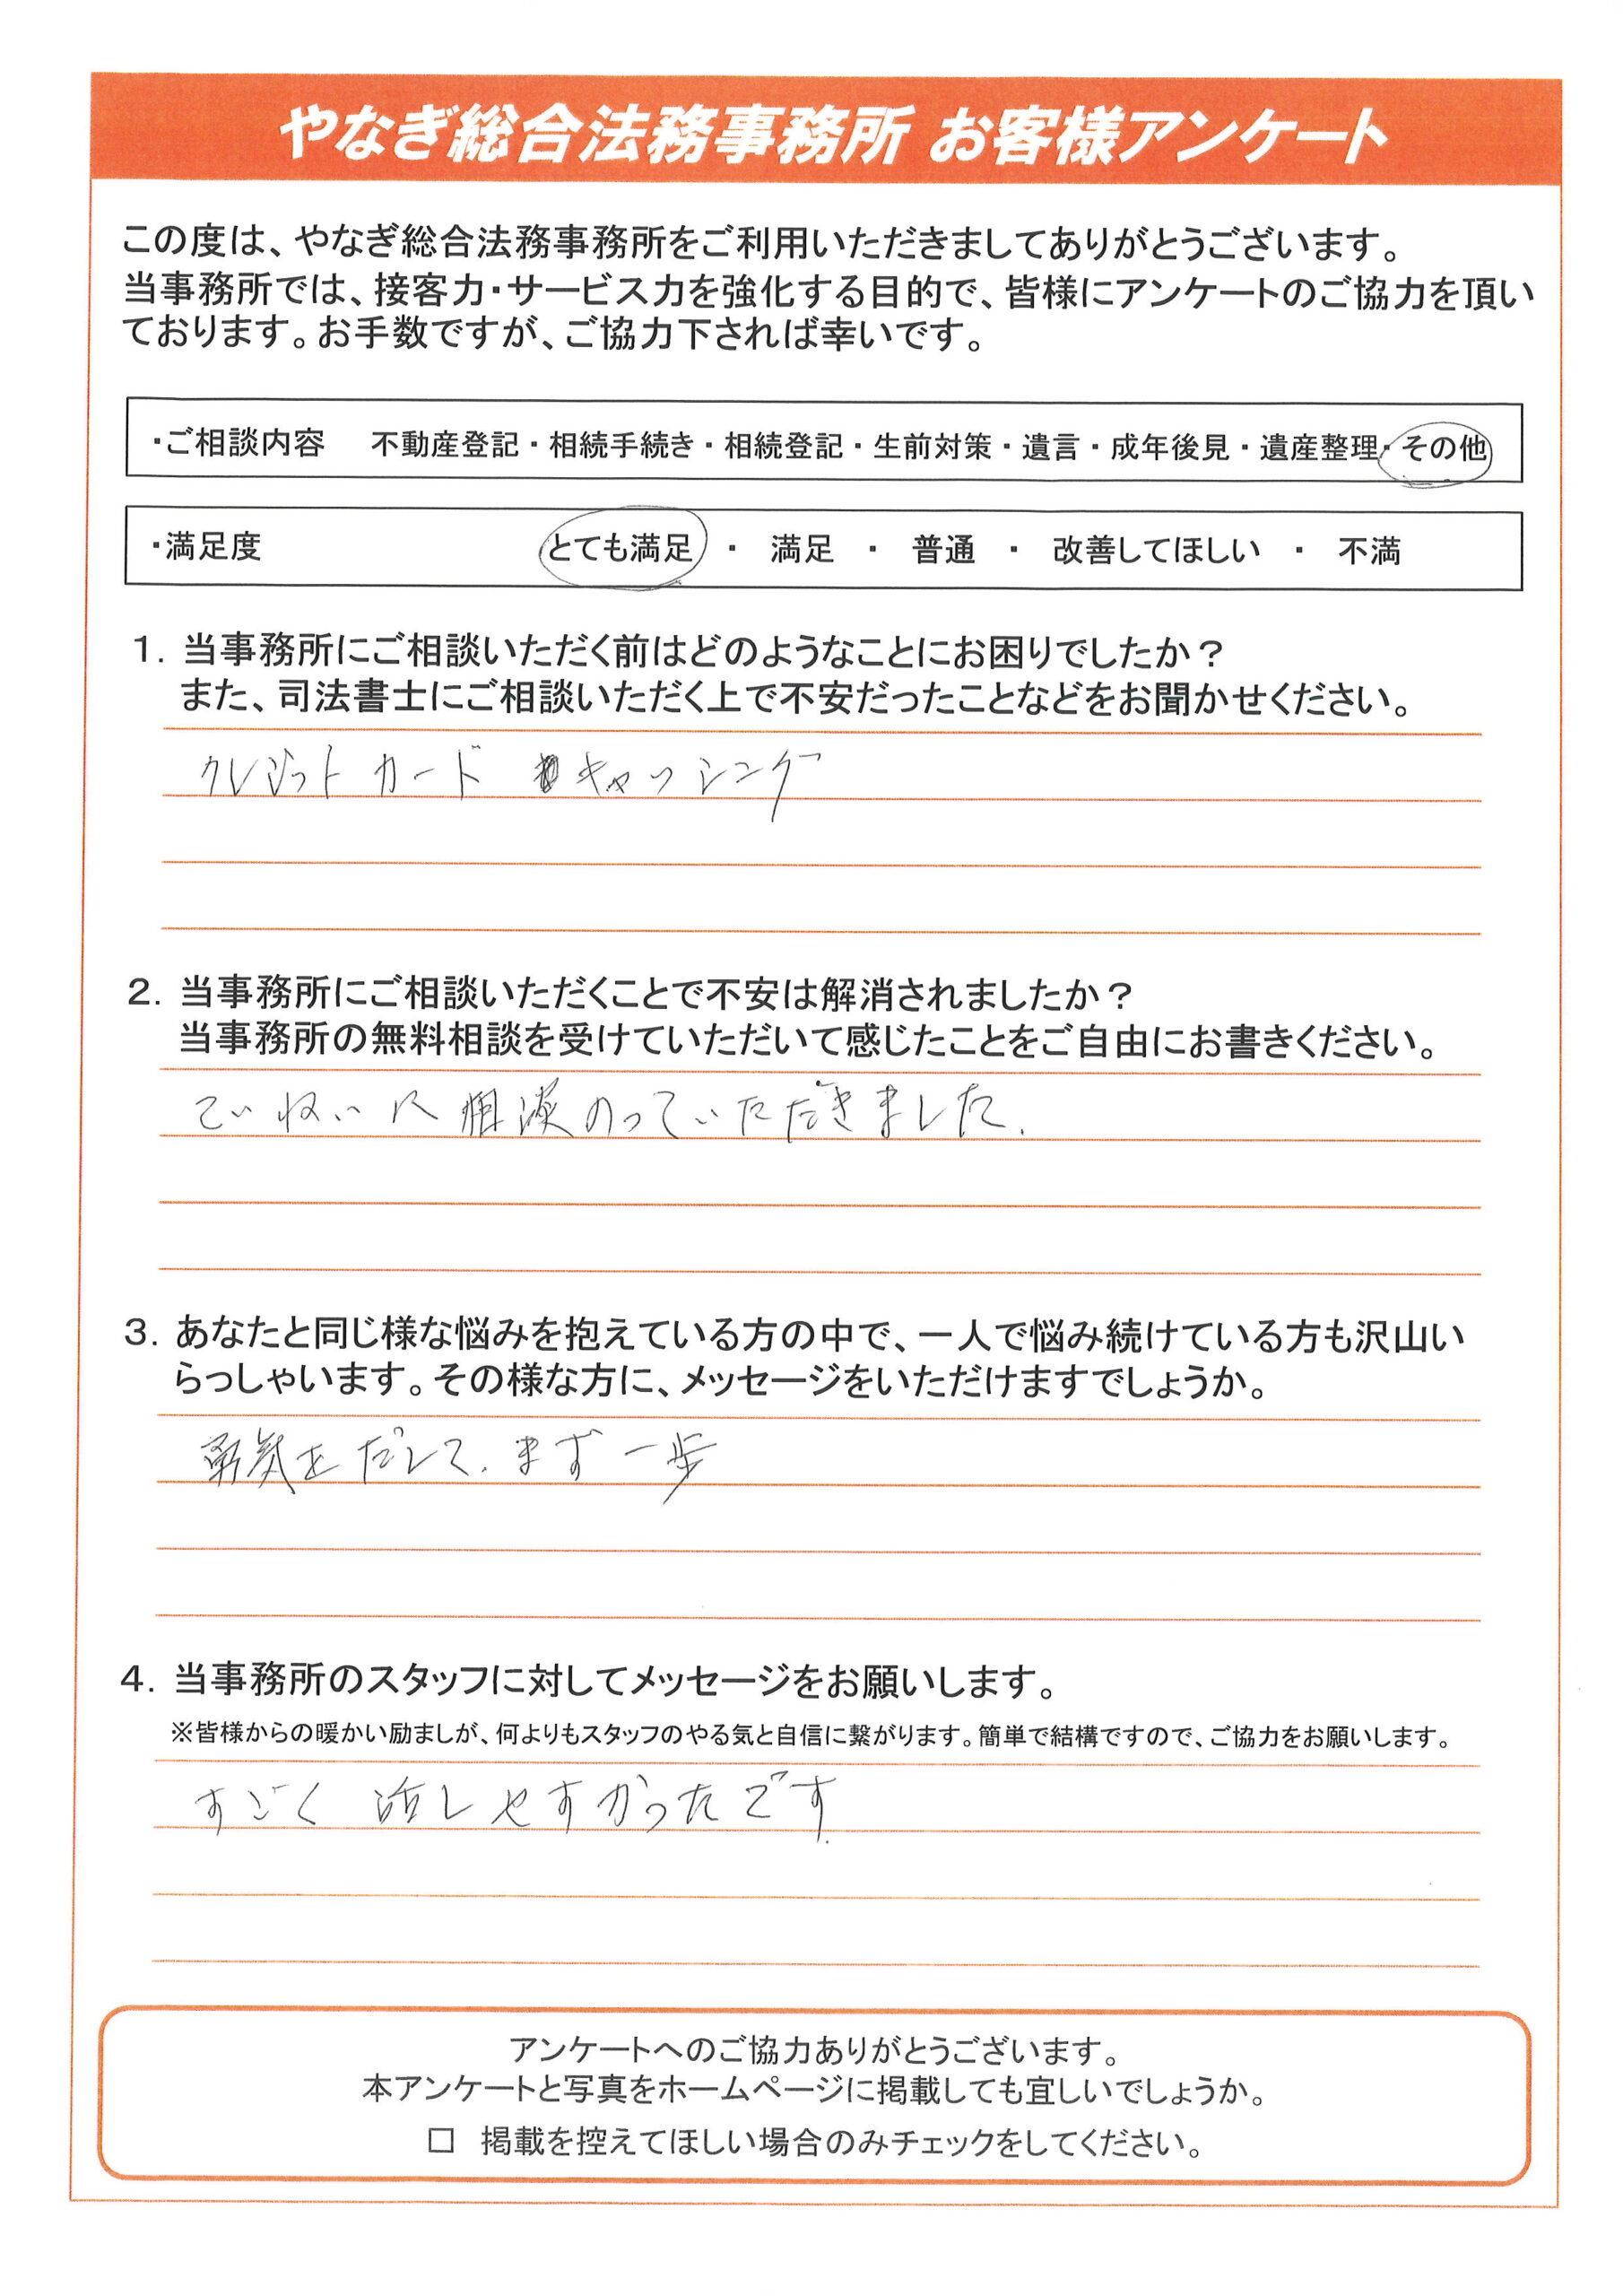 やなぎ総合法務事務所 お客様アンケート
この度は、やなぎ総合法務事務所をご利用いただきましてありがとうございます。
当事務所では、接客力・サービス力を強化する目的で、皆様にアンケートのご協力を頂い
ております。お手数ですが、ご協力下されば幸いです。
・ご相談内容 不動産登記・相続手続き・相続登記・生前対策・遺言・成年後見・遺産整理・その他
・満足度 とても満足 ・ 満足 ・ 普通 ・ 改善してほしい ・ 不満
1. 当事務所にご相談いただく前はどのようなことにお困りでしたか？
また、司法書士にご相談いただく上で不安だったことなどをお聞かせください。
クレジットカード キャッシング
2. 当事務所にご相談いただくことで不安は解消されましたか？
当事務所の無料相談を受けていただいて感じたことをご自由にお書きください。
ていねいに相談のっていただきました.
3. あなたと同じ様な悩みを抱えている方の中で、一人で悩み続けている方も沢山い
らっしゃいます。その様な方に、メッセージをいただけますでしょうか。
勇気をだして、まず一歩
4. 当事務所のスタッフに対してメッセージをお願いします。
※皆様からの暖かい励ましが、何よりもスタッフのやる気と自信に繋がります。簡単で結構ですので、ご協力をお願いします。
すごく 話しやすかったです.
アンケートへのご協力ありがとうございます。
本アンケートと写真をホームページに掲載しても宜しいでしょうか。
□ 掲載を控えてほしい場合のみチェックをしてください。